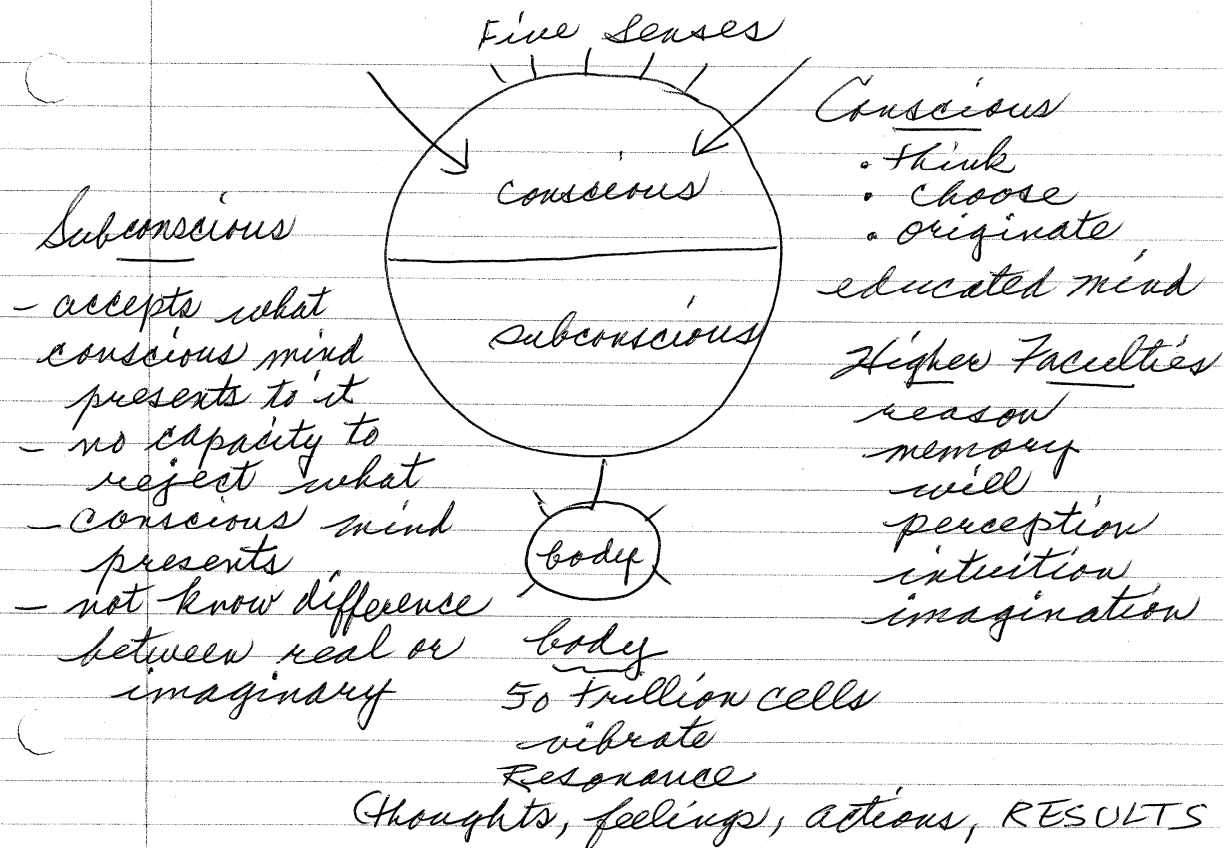 Five Senses
conscious
subconscious
body
Subconscious
- accepts what
conscious mind
presents to it
- no capacity to
reject what
- conscious mind
presents
- not know difference
between real or
imaginary
Conscious
• think
• choose
• originate
educated mind
Higher Faculties
reason
memory
will
perception
intuition
imagination
body
50 trillion cells
vibrate
Resonance
(thoughts, feelings, actions, RESULTS